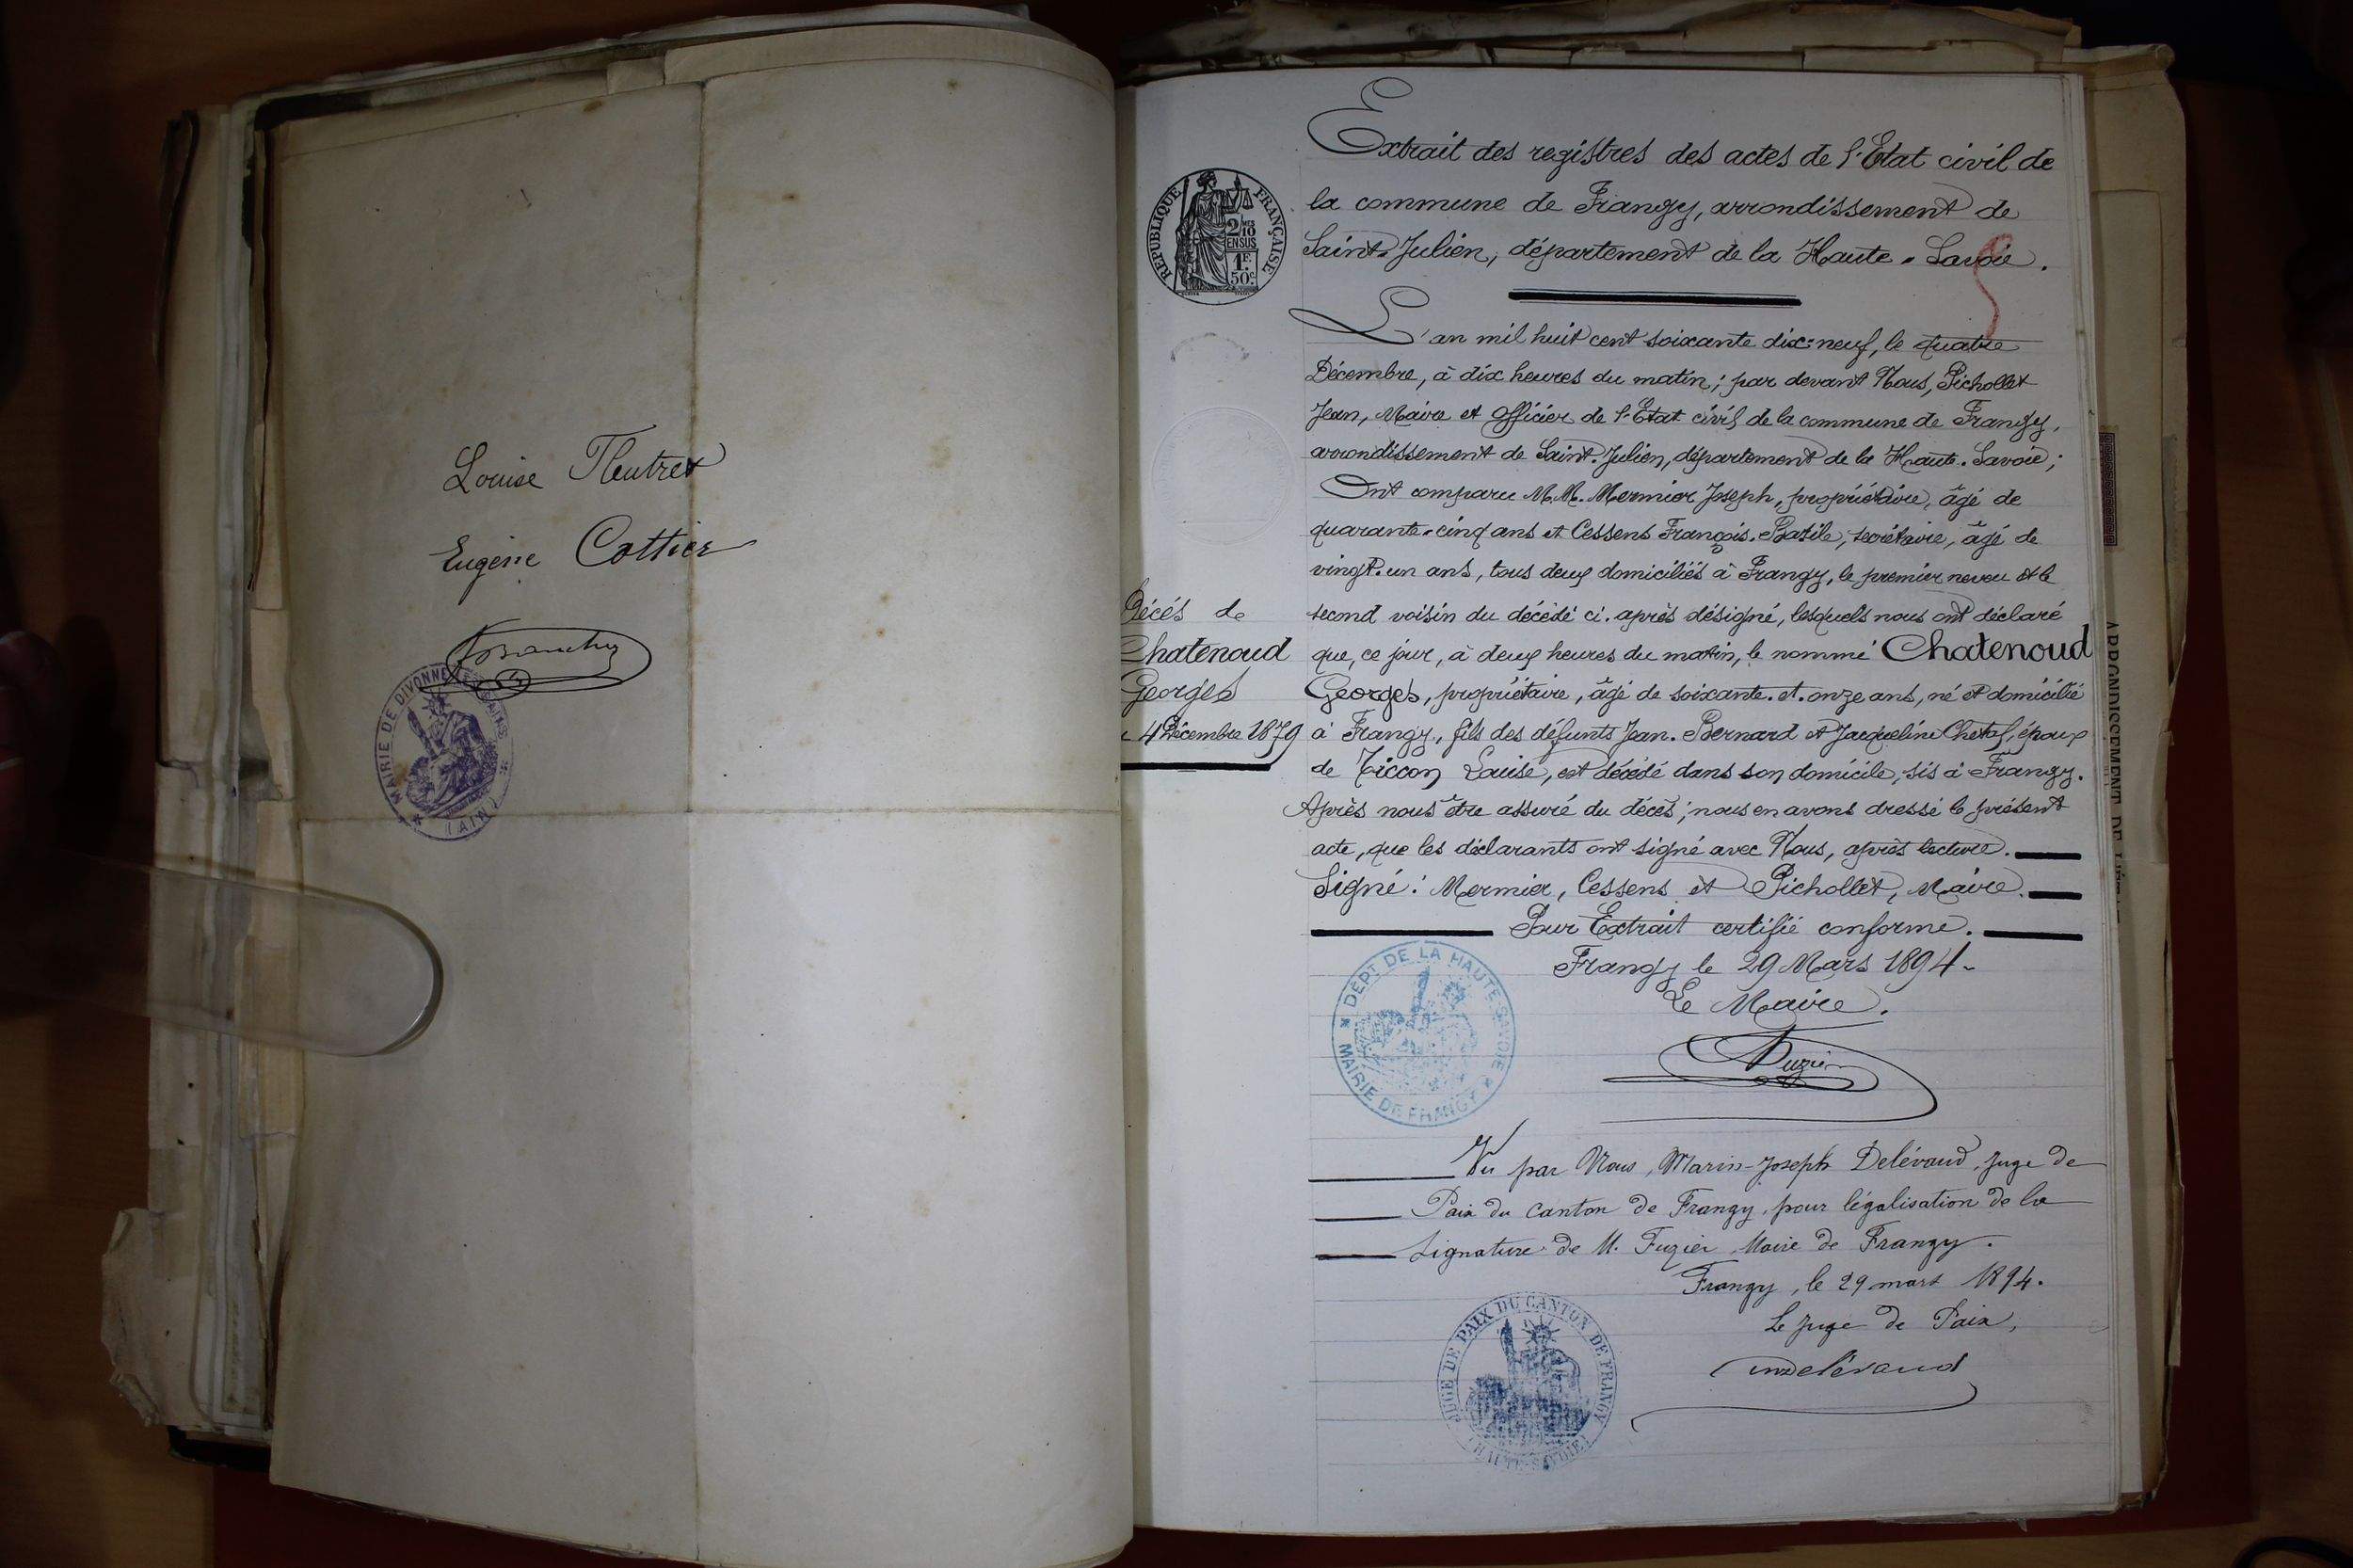 Louise
Eugène Cottier
MAIRIE DE DIVONNE-LES-BAINS
(AIN)
RÉPUBLIQUE FRANÇAISE
2/10
EN SUS
1F.
50c.
Extrait des registres des actes de l'Etat civil de
la commune de Frangy, arrondissement de
Saint-Julien, département de la Haute-Savoie.
L'an mil huit cent soixante dix-neuf, le quatre
Décembre, à dix heures du matin; par devant Nous, Pichollet
Jean, Maire et officier de l'Etat civil de la commune de Frangy,
arrondissement de Saint-Julien, département de la Haute-Savoie;
Ont comparu M.M. Mermier Joseph, propriétaire, âgé de
quarante-cinq ans et Cessens François-Basile, secrétaire, âgé de
vingt-un ans, tous deux domiciliés à Frangy, le premier neveu et le
second voisin du décédé ci-après désigné, lesquels nous ont déclaré
que, ce jour, à deux heures du matin, le nommé Chatenoud
Georges, propriétaire, âgé de soixante-et-onze ans, né et domicilié
à Frangy, fils des défunts Jean-Bernard et Jacqueline époux
de Louise, est décédé dans son domicile, sis à Frangy.
Après nous être assuré du décès; nous en avons dressé le présent
acte, que les déclarants ont signé avec Nous, après lecture.
Signé: Mermier, Cessens et Pichollet, Maire.
Pour Extrait certifié conforme.
Frangy le 29 Mars 1894.
Le Maire.
Décès de
Chatenoud
Georges
4 Décembre 1879
DÉPT DE LA HAUTE-SAVOIE
MAIRIE DE FRANGY
Vu par Nous, Marin-Joseph Delévaud, Juge de
Paix du Canton de Frangy, pour légalisation de la
signature de M. Fuzier, Maire de Frangy.
Frangy, le 29 mars 1894.
Le Juge de Paix,
Delévaud
JUGE DE PAIX DU CANTON DE FRANGY
(HAUTE-SAVOIE)
ARRONDISSEMENT DE